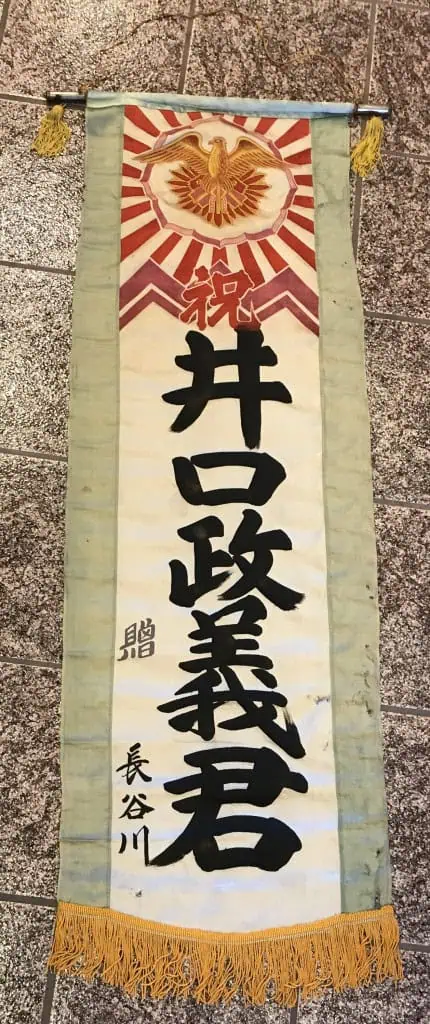 祝
井口政義君
贈
長谷川